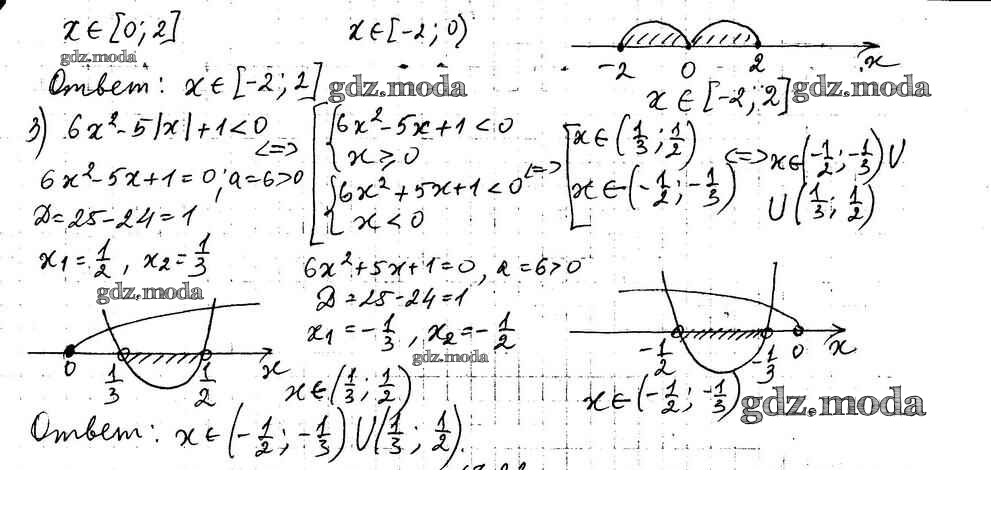 x ∈ [0; 2]
x ∈ [-2; 0)
gdz.moda
-2 0 2 x
Ответ: x ∈ [-2; 2] gdz.moda
x ∈ [-2; 2] gdz.moda
3) 6x² - 5|x| + 1 < 0 <=> [ { 6x² - 5x + 1 < 0
{ x ⩾ 0
{ 6x² + 5x + 1 < 0
{ x < 0
<=> [ x ∈ (1/3; 1/2)
x ∈ (-1/2; -1/3)
<=> x ∈ (-1/2; -1/3) ∪
∪ (1/3; 1/2)
6x² - 5x + 1 = 0; a = 6 > 0
D = 25 - 24 = 1
x₁ = 1/2, x₂ = 1/3
gdz.moda
0 1/3 1/2 x
6x² + 5x + 1 = 0, a = 6 > 0
D = 25 - 24 = 1
x₁ = -1/3, x₂ = -1/2
gdz.moda
x ∈ (1/3; 1/2)
-1/2 -1/3 0 x
x ∈ (-1/2; -1/3) gdz.moda
Ответ: x ∈ (-1/2; -1/3) ∪ (1/3; 1/2).